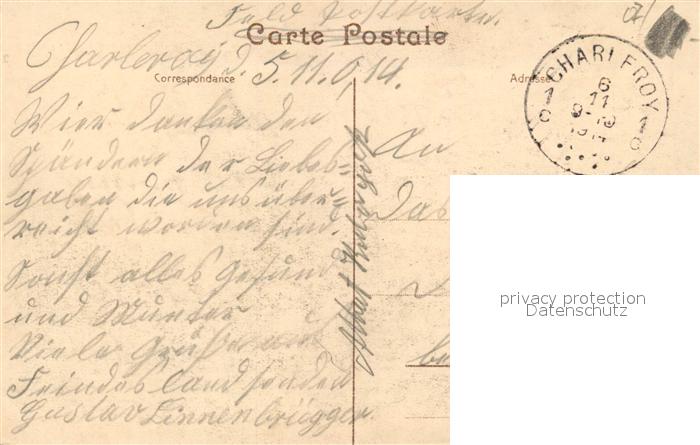 Feld Postkarte.
Carte Postale
Charleroi d. 5.11.0,14.
Correspondance
Adresse
CHARLEROY
1 C
6
11
9-10
1914
1 C
Wier danken den
Spändern der Liebes-
gaben die uns über-
reicht worden sind.
Sonst alles Gesund
und Munter
Viele Grüße aus
Feindes Land senden
Gustav Linnenbrügger
Albert
An
Das
privacy protection
Datenschutz